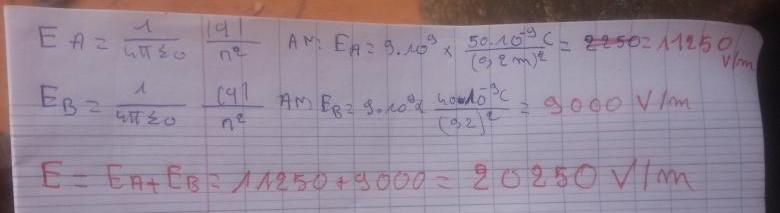 E_A = 1/(4πε0) |q|/r² AN: E_A = 9.10⁹ × 50.10⁻⁹C/(0,2m)² = ~~2250~~ = 11250 V/m
E_B = 1/(4πε0) |q|/r² AN E_B = 9.10⁹ × 40.10⁻⁹C/(0,2)² = 9000 V/m
E = E_A + E_B = 11250 + 9000 = 20250 V/m